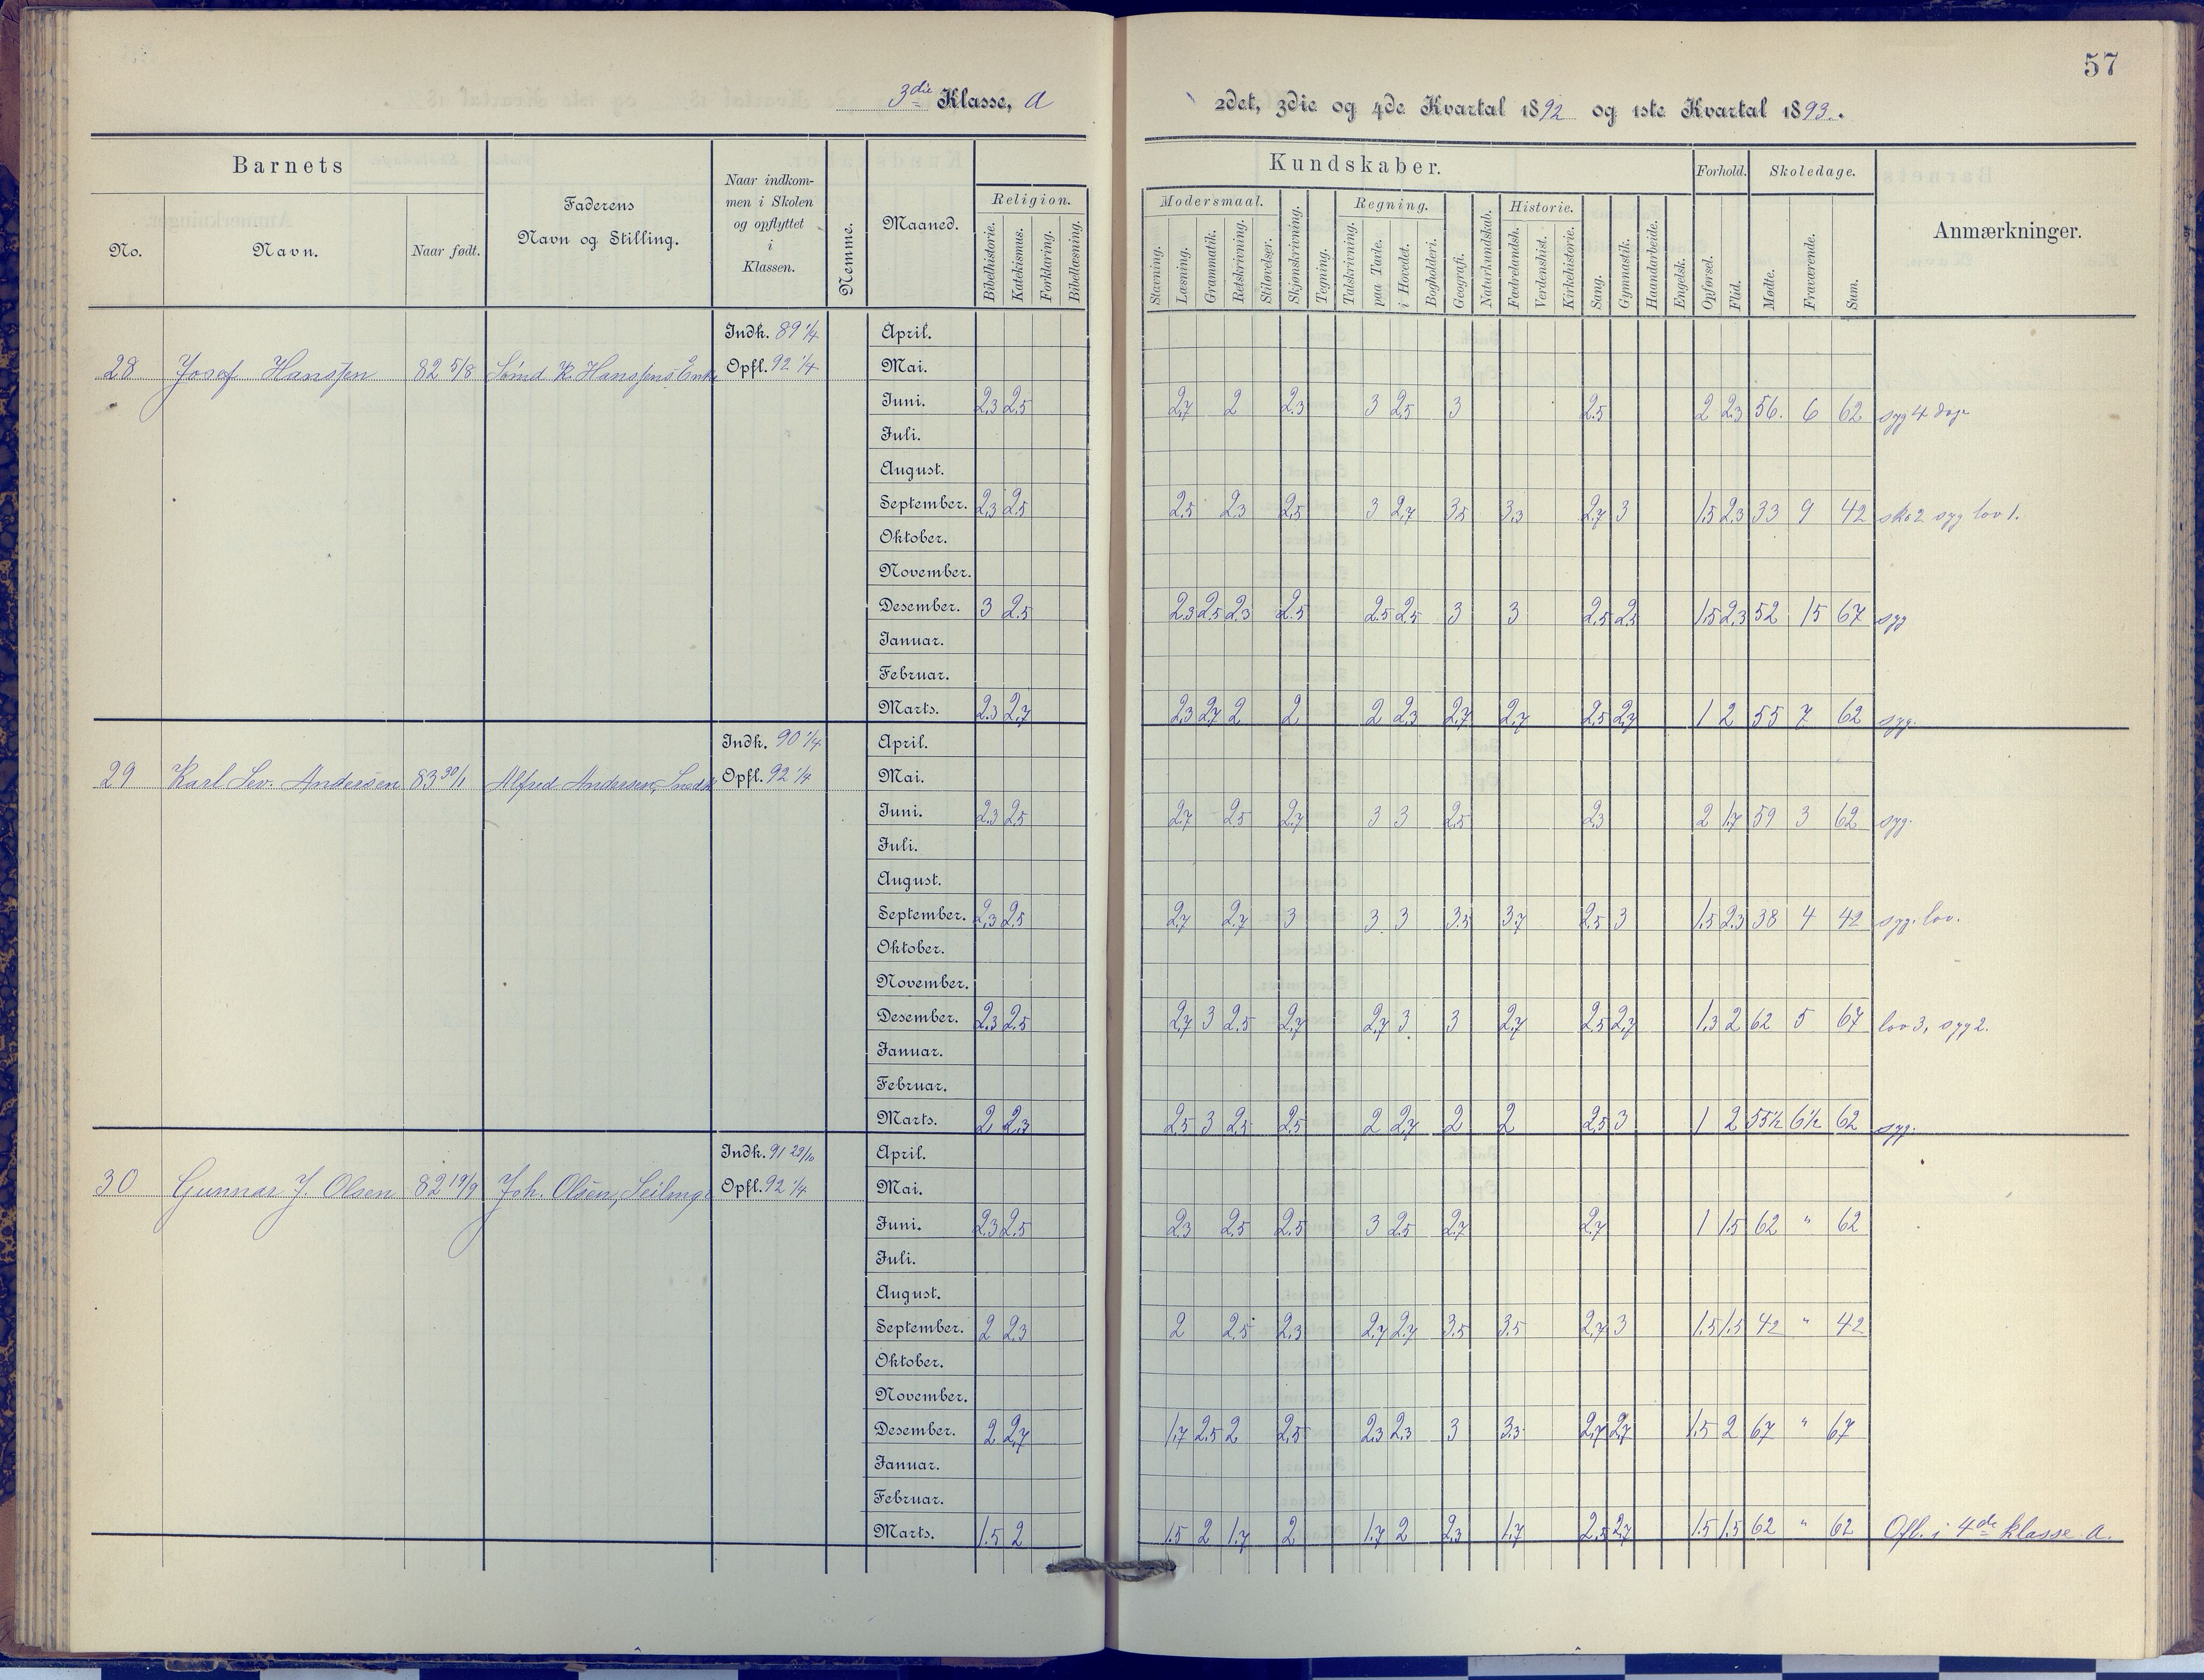 57
3die Klasse, A
2det, 3die og 4de Kvartal 1892 og 1ste Kvartal 1893.
Barnets
No.
Navn.
Naar født.
Faderens
Navn og Stilling.
Naar indkom-
men i Skolen
og opflyttet
i
Klassen.
Nemme.
Maaned.
Kundskaber.
Religion.
Bibelhistorie.
Katekismus.
Forklaring.
Bibellæsning.
Modersmaal.
Stavning.
Læsning.
Grammatik.
Retskrivning.
Stiløvelser.
Skjønskrivning.
Tegning.
Regning.
Talskrivning.
paa Tavle.
i Hovedet.
Bogholderi.
Geografi.
Naturkundskab.
Historie.
Fædrelandsh.
Verdenshist.
Kirkehistorie.
Sang.
Gymnastik.
Haandarbeide.
Engelsk.
Forhold.
Opførsel.
Flid.
Skoledage.
Møde.
Fraværende.
Sum.
Anmærkninger.
Indk. 89 1/4 April.
28 Josef Hanssen 82 5/8 K. Hanssens Enke Opfl. 92 1/4 Mai.
Juni. 2.3 2.5 2.7 2 2.3 3 2.5 3 2.5 2 2.3 56. 6 62 syg 4 dage
Juli.
August.
September. 2.3 2.5 2.5 2.3 2.5 3 2.7 3.5 3.3 2.7 3 1.5 2.3 33 9 42 sko 2 syg lov 1.
Oktober.
November.
Desember. 3 2.5 2.3 2.5 2.3 2.5 2.5 2.5 3 3 2.5 2.5 1.5 2.3 52 15 67 syg
Januar.
Februar.
Marts. 2.3 2.7 2.3 2.7 2 2 2 2.3 2.7 2.7 2.5 2.7 1 2 55 7 62 syg.
Indk. 90 1/4 April.
29 Karl Sev. Andersen 83 30/1 Alfred Andersen, Snedk Opfl. 92 1/4 Mai.
Juni. 2.3 2.5 2.7 2.5 2.7 3 3 2.5 2.3 2 1.7 59 3 62 syg.
Juli.
August.
September. 2.3 2.5 2.7 2.7 3 3 3 3.5 3.7 2.5 3 1.5 2.3 38 4 42 syg. lov.
Oktober.
November.
Desember. 2.3 2.5 2.7 3 2.5 2.7 2.7 3 3 2.7 2.5 2.7 1.3 2 62 5 67 lov 3, syg 2.
Januar.
Februar.
Marts. 2 2.3 2.5 3 2.5 2.5 2 2.7 2 2 2.5 3 1 2 55½ 6½ 62 syg.
Indk. 91 29/10 April.
30 Gunnar J. Olsen 82 19/9 Joh. Olsen, Seilmag. Opfl. 92 1/4 Mai.
Juni. 2.3 2.5 2.3 2.5 2.5 3 2.5 2.7 2.7 1 1.5 62 " 62
Juli.
August.
September. 2 2.3 2 2.5 2.3 2.7 2.7 3.5 3.5 2.7 3 1.5 1.5 42 " 42
Oktober.
November.
Desember. 2 2.7 1.7 2.5 2 2.5 2.3 2.3 3 3.3 2.7 2.7 1.5 2 67 " 67
Januar.
Februar.
Marts. 1.5 2 1.5 2 1.7 2 1.7 2 2.3 1.7 2.5 2.7 1.5 1.5 62 " 62 Ofl. i 4de klasse A.